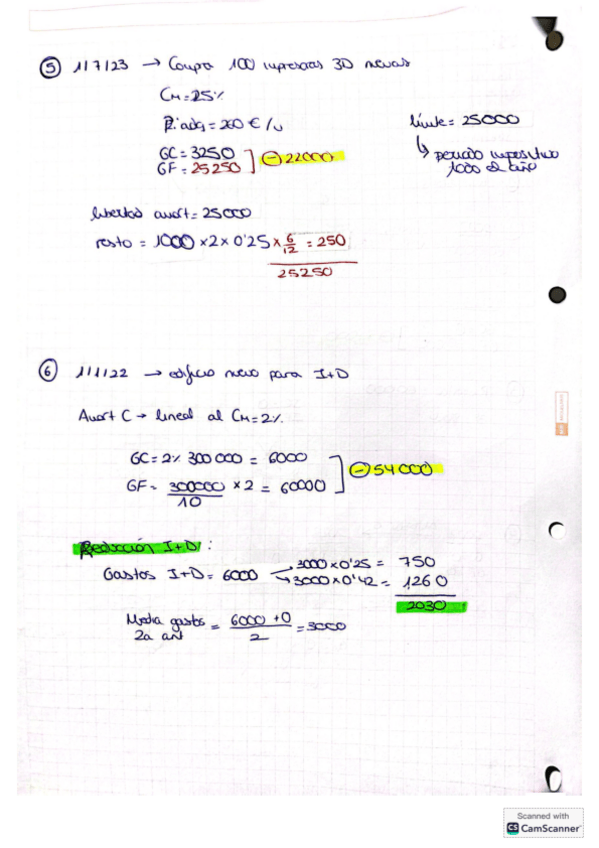 ⑤ 1/7/23 → Compra 100 impresoras 3D nuevas
CM=25%
P.adq=260€/u
límite = 25000
↳ periodo impositivo
todo el año
GC=3250
GF=25250
⊖ 22000
libertad amort=25000
resto = 1000 × 2 × 0'25 × 6/12 = 250
25250
⑥ 1/1/22 → edificio nuevo para I+D
Amort C → lineal al CM=2%
GC=2% 300000 = 6000
GF= 300000/10 × 2 = 60000
⊖ 54000
Deducción I+D:
Gastos I+D= 6000 → 3000×0'25 = 750
→ 3000×0'42 = 1260
2030
Media gastos 2a ant = 6000+0/2 = 3000
Scanned with
CS CamScanner